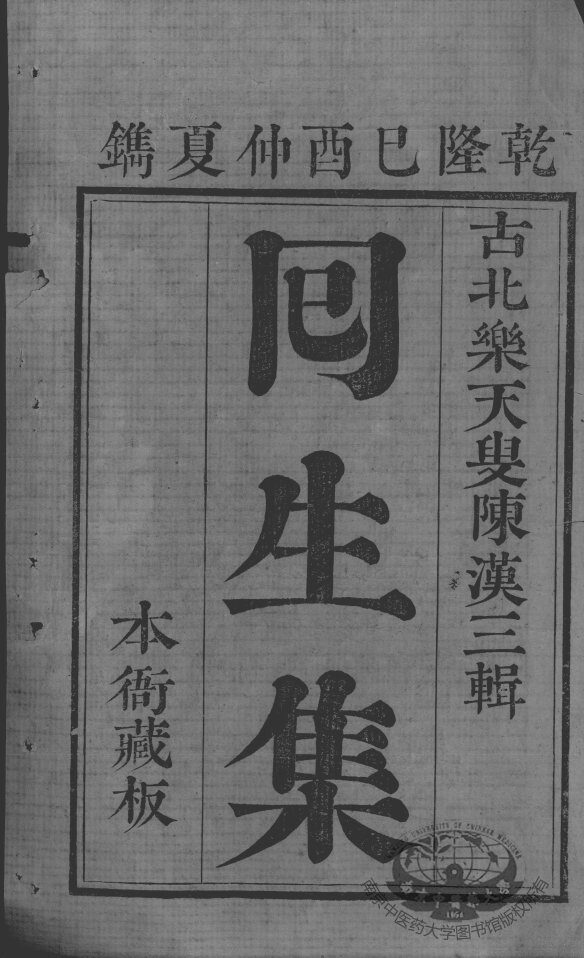 乾隆巳酉仲夏鐫
古北樂天叟陳漢三輯
回生集
本衙藏板
南京中医药大学图书馆版权所有
1954